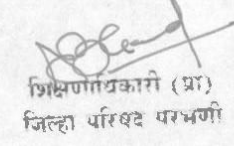 शिक्षणाधिकारी (प्रा)
जिल्हा परिषद परभणी